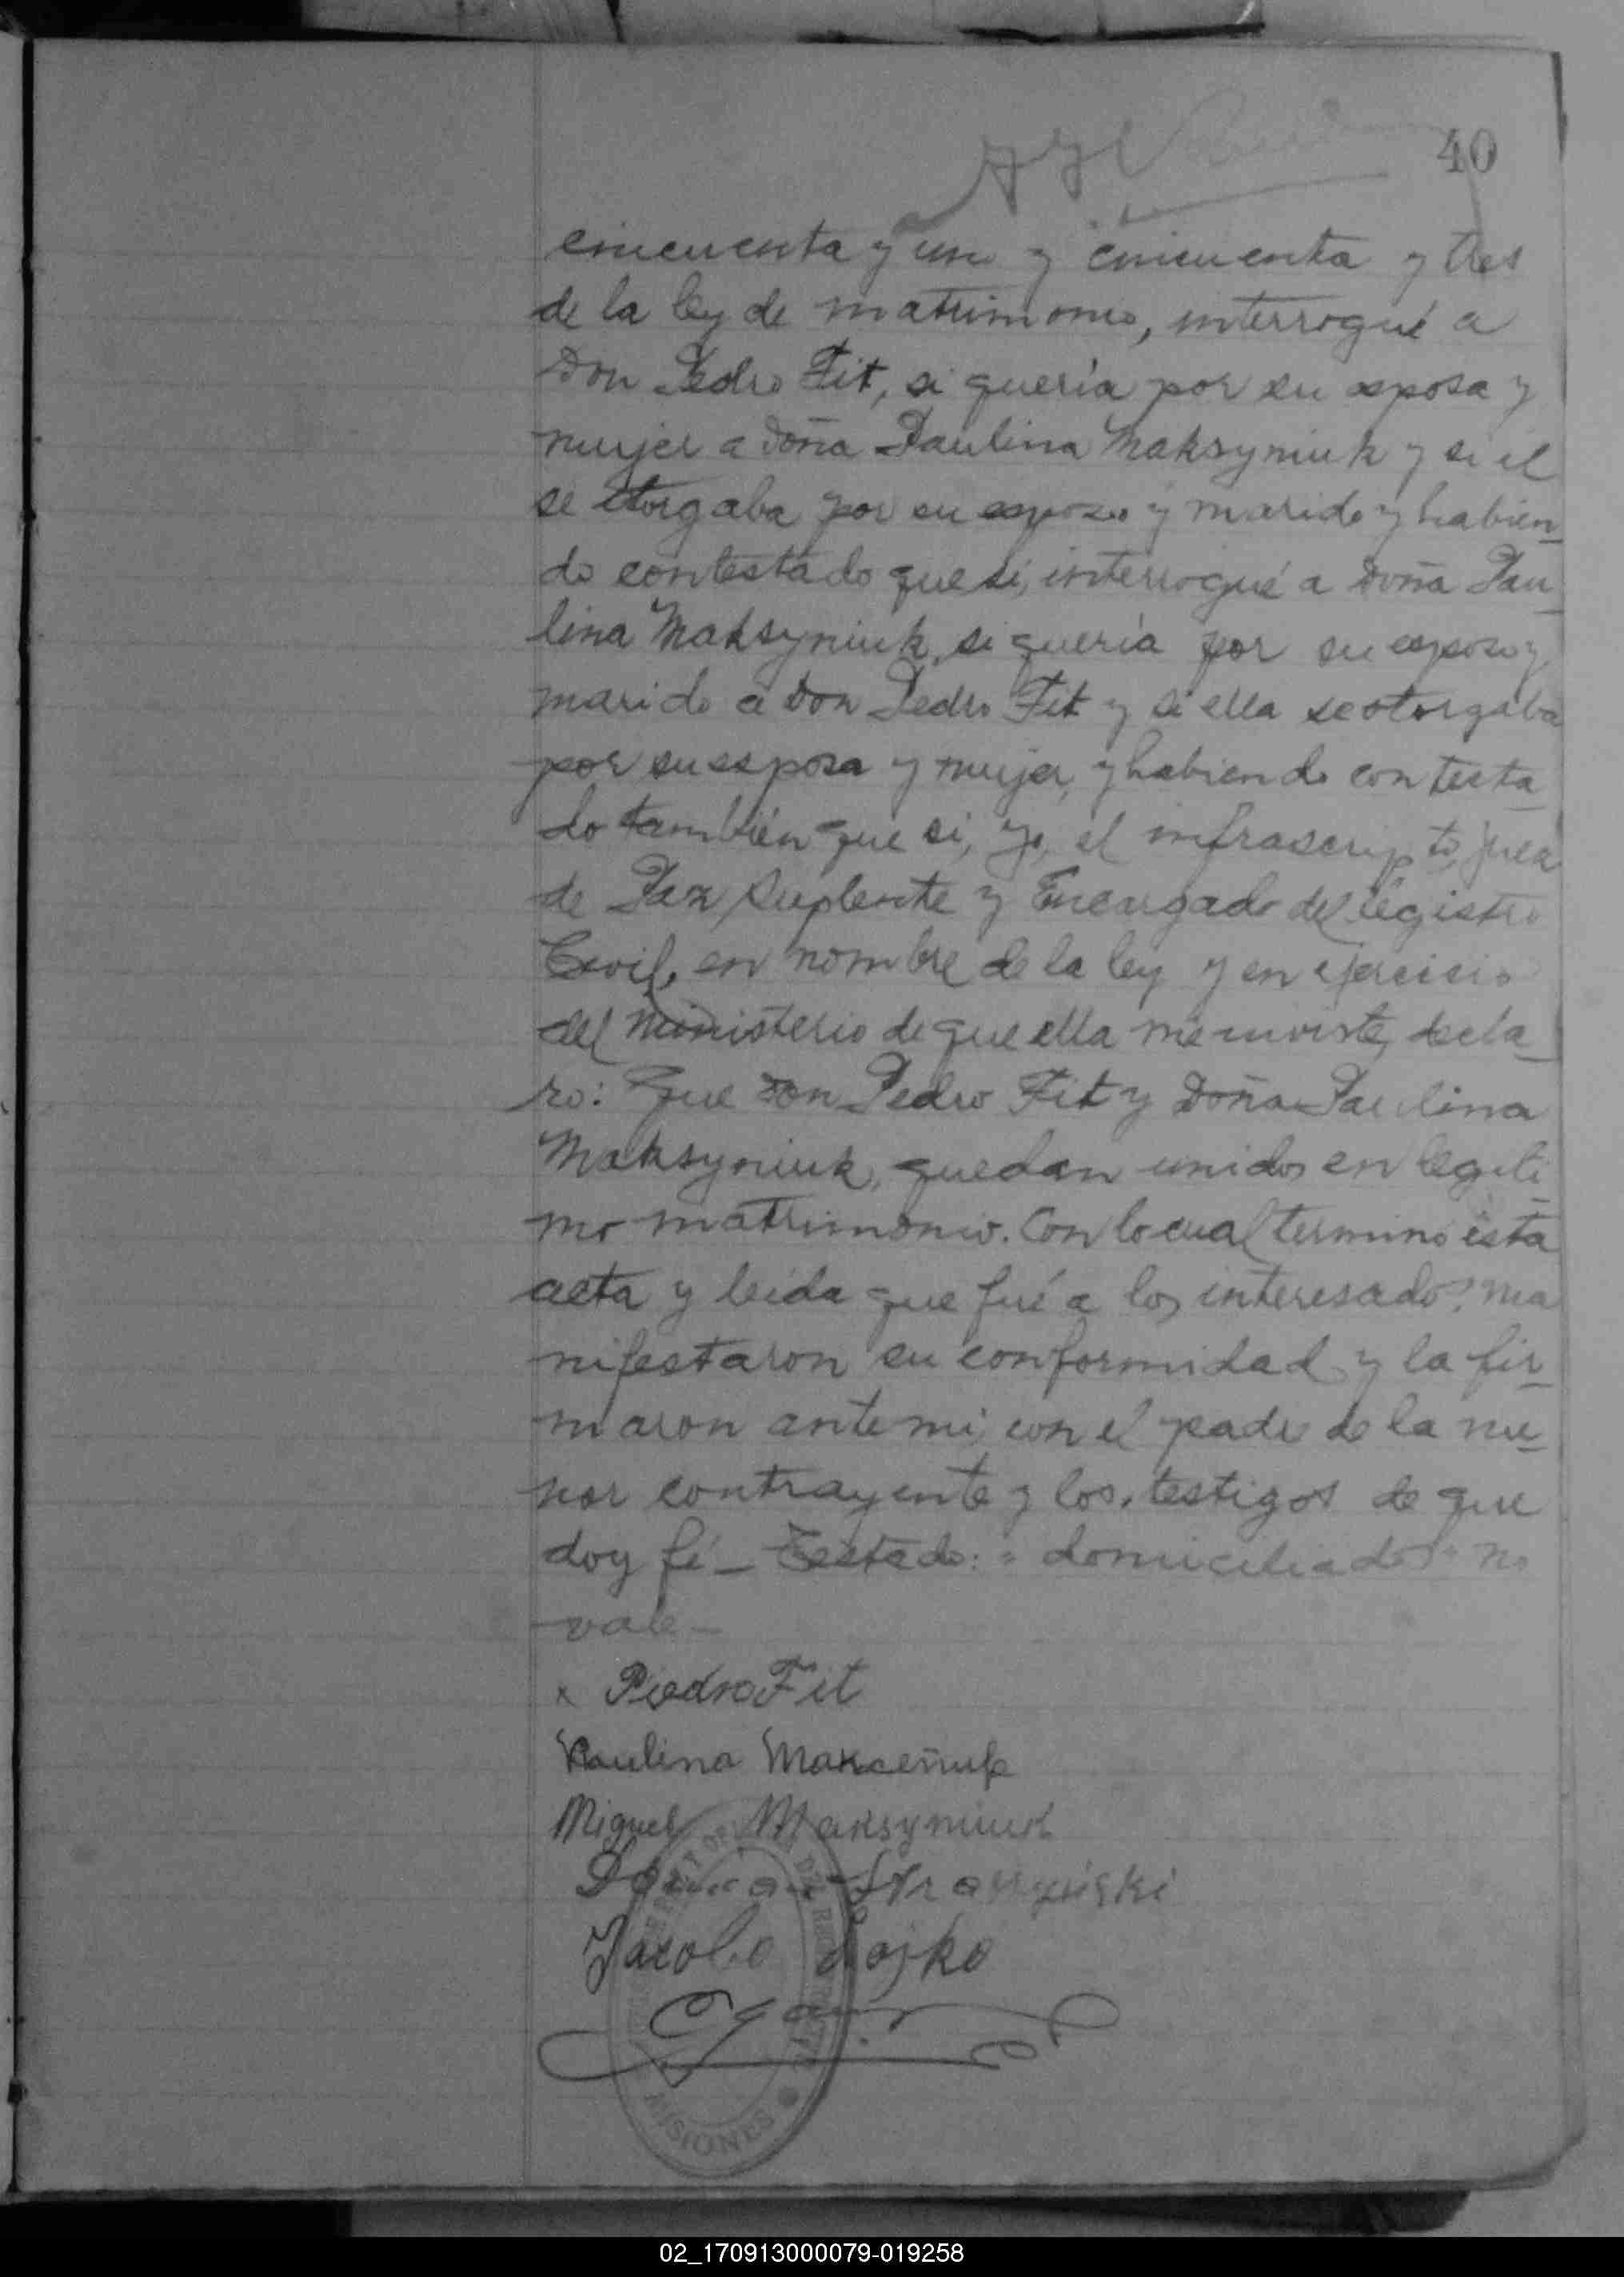 40
cincuenta y uno y cincuenta y tres
de la ley de matrimonio, interrogué a
Don Pedro Fit, si quería por su esposa y
mujer a Doña Paulina Maksyniuk y si él
se otorgaba por su esposo y marido y habien_
do contestado que si, interrogué a Doña Pau_
lina Maksyniuk, si quería por su esposo y
marido a Don Pedro Fit y si ella se otorgaba
por su esposa y mujer, y habiendo contesta_
do también que si, yo, el infrascripto, Juez
de Paz Suplente y Encargado del Registro
Civil, en nombre de la ley y en ejercicio
del Ministerio de que ella me inviste, decla_
ro: Que Don Pedro Fit y Doña Paulina
Maksyniuk, quedan unidos en legiti_
mo matrimonio. Con lo cual termino esta
acta y leida que fué a los interesados, ma
nifestaron su conformidad y la fir_
maron ante mi, con el padre de la me_
nor contrayente y los testigos de que
doy fé _ Testado: "domiciliados" no
vale _
x Piedro Fit
Paulina Makceñuk
Miguel Maksymiuk
Jacobo Bojko
MISIONES
02_170913000079-019258